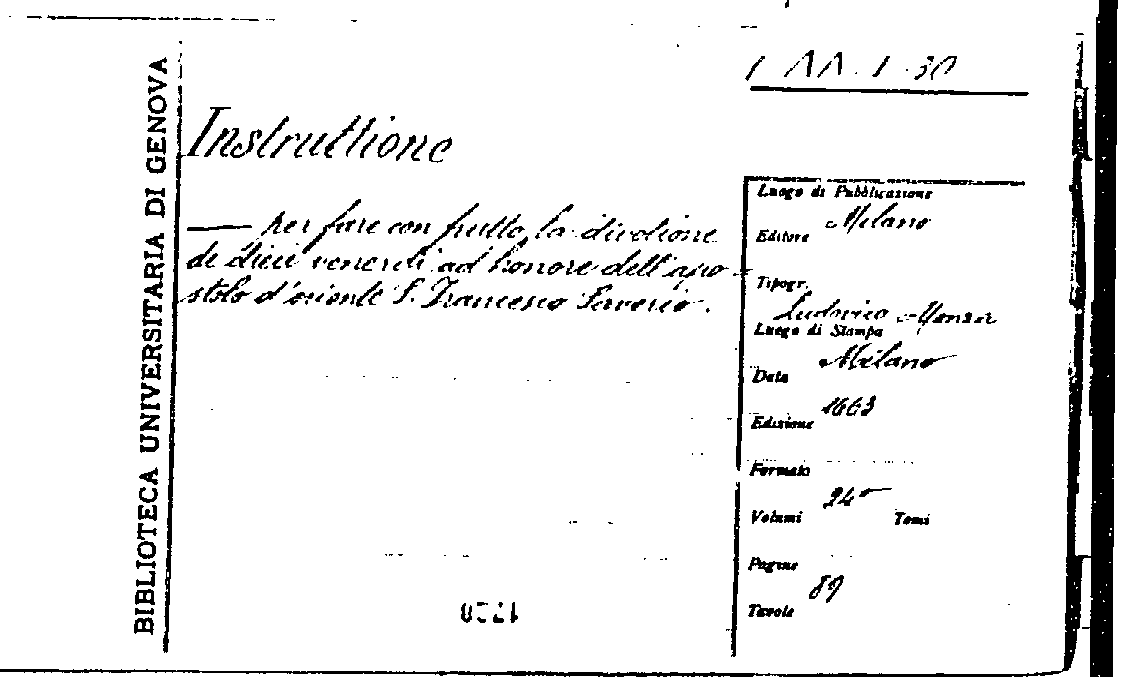 BIBLIOTECA UNIVERSITARIA DI GENOVA
Instruttione
— per fare con frutto la divotione
di dieci venerdi ad honore dell'apo-
stolo d'oriente S. Francesco Saverio.
1 AA. I. 30
Luogo di Pubblicazione
Milano
Editore
Tipogr.
Ludovico Monza
Luogo di Stampa
Milano
Data
1663
Edizione
Formato
24°
Volumi Tomi
Pagine
89
Tavole